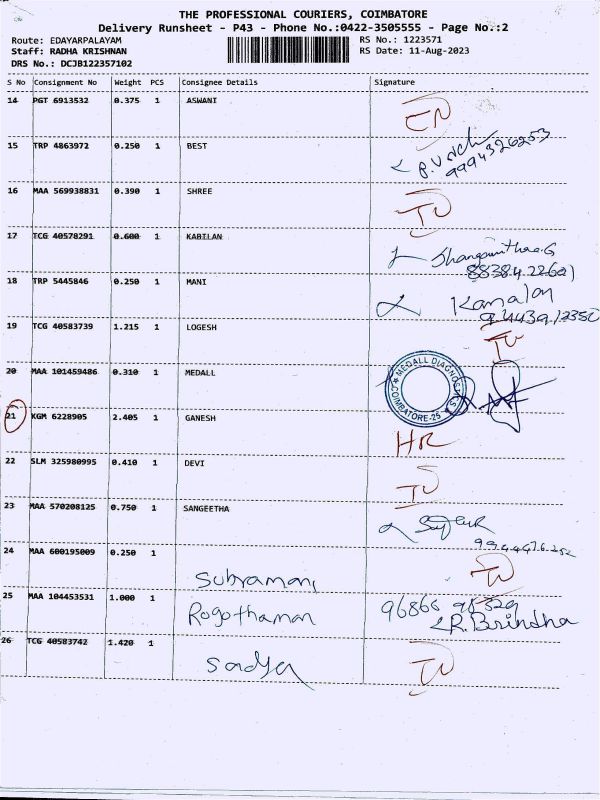 THE PROFESSIONAL COURIERS, COIMBATORE
Delivery Runsheet - P43 - Phone No.:0422-3505555 - Page No.:2
Route: EDAYARPALAYAM RS No.: 1223571
Staff: RADHA KRISHNAN RS Date: 11-Aug-2023
DRS No.: DCJB122357102
S No Consignment No Weight PCS Consignee Details Signature
14 PGT 6913532 0.375 1 ASWANI
15 TRP 4863972 0.250 1 BEST
9994326253
16 MAA 569938831 0.390 1 SHREE
17 TCG 40578291 0.600 1 KABILAN
18 TRP 5445846 0.250 1 MANI
Kamalan
19 TCG 40583739 1.215 1 LOGESH
20 MAA 101459486 0.310 1 MEDALL
MEDALL DIAGNOSTICS
COIMBATORE-25
21 KGM 6228905 2.405 1 GANESH
22 SLM 325980995 0.410 1 DEVI
23 MAA 570208125 0.750 1 SANGEETHA
24 MAA 600195009 0.250 1 Subramani
25 MAA 104453531 1.000 1 Rogothaman
R. Birindha
26 TCG 40583742 1.420 1 Sadya